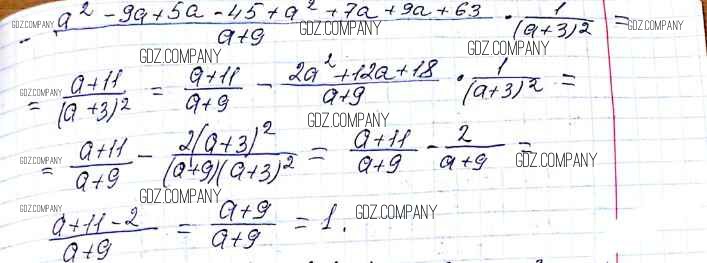 GDZ.COMPANY - (a² - 9a + 5a - 45 + a² + 7a + 9a + 63)/(a+9) · 1/(a+3)² = GDZ.COMPANY
GDZ.COMPANY
GDZ.COMPANY = (a+11)/(a+3)² = (a+11)/(a+9) - (2a² + 12a + 18)/(a+9) · 1/(a+3)² = GDZ.COMPANY
GDZ.COMPANY
GDZ.COMPANY = (a+11)/(a+9) - 2(a+3)²/((a+9)(a+3)²) = (a+11)/(a+9) - 2/(a+9) = GDZ.COMPANY
GDZ.COMPANY
GDZ.COMPANY (a+11-2)/(a+9) = (a+9)/(a+9) = 1. GDZ.COMPANY